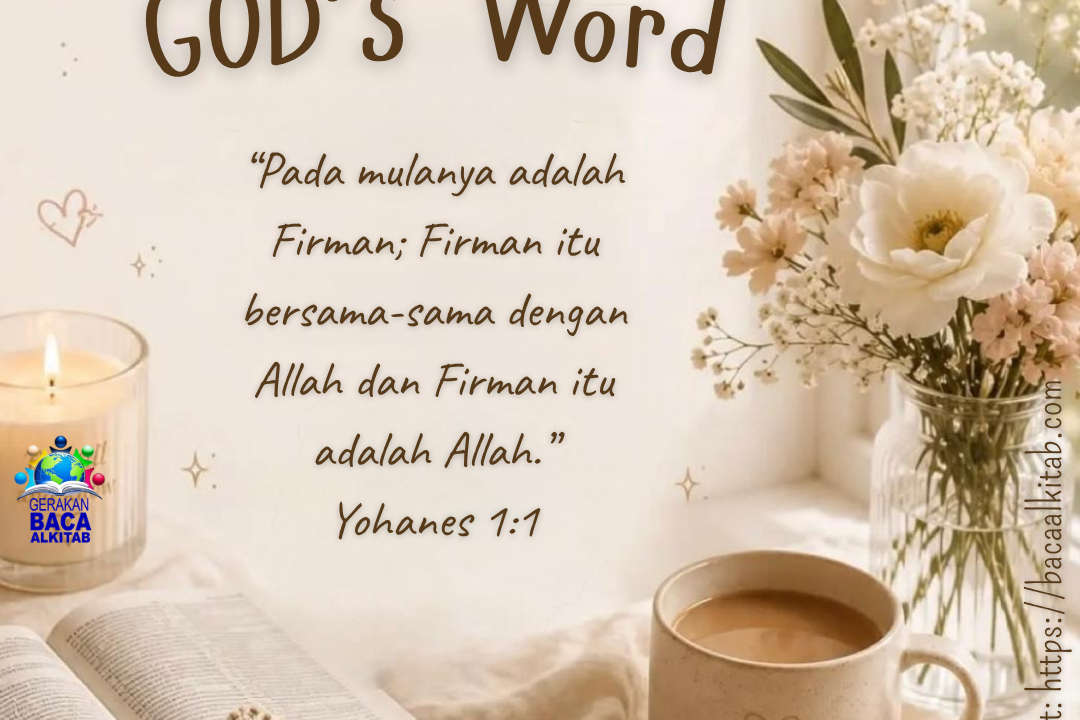 GOD's Word
“Pada mulanya adalah
Firman; Firman itu
bersama-sama dengan
Allah dan Firman itu
adalah Allah.”
Yohanes 1:1
GERAKAN
BACA
ALKITAB
t: https://bacaalkitab.com